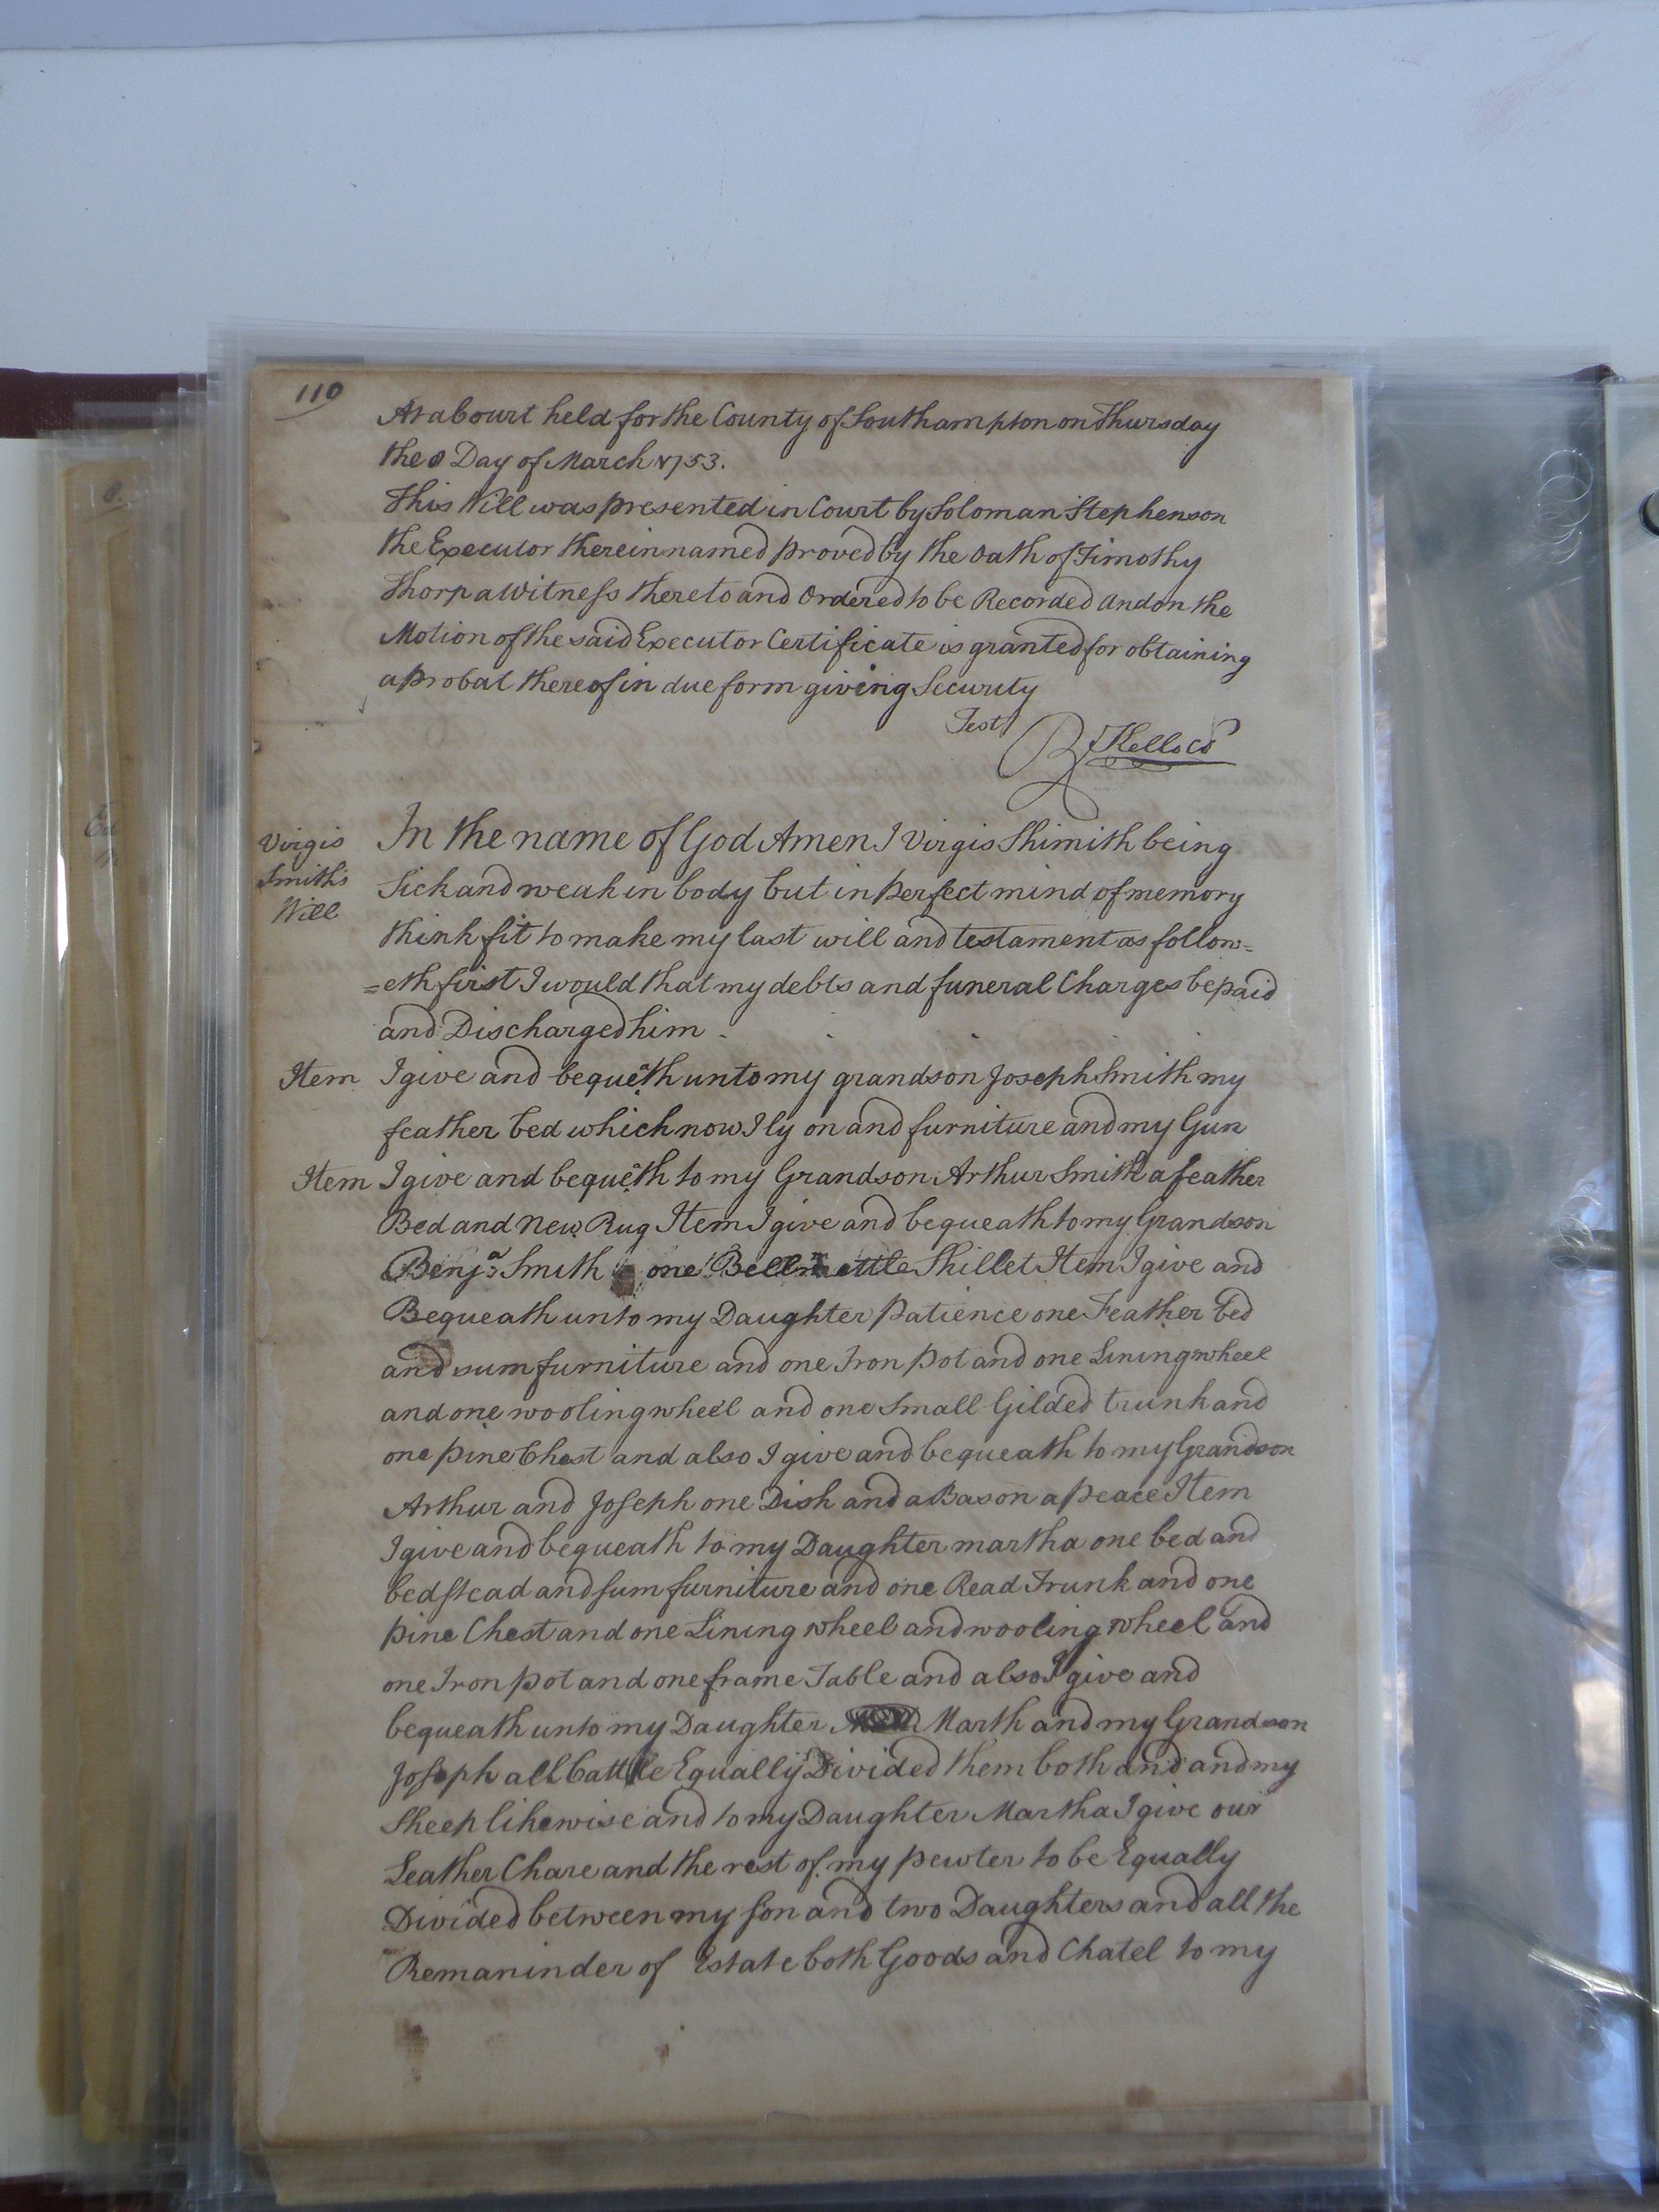 110
At a Court held for the County of Southampton on Thursday
the 8 Day of March 1753.
This Will was presented in Court by Soloman Stephenson
the Executor therein named proved by the Oath of Timothy
Thorp a Witness thereto and Ordered to be Recorded And on the
Motion of the said Executor Certificate is granted for obtaining
a probat thereof in due form giving Security
Test
R Kello CS
Virgis
Smith's
Will
In the name of God Amen I Virgis Shimith being
Sick and weak in body but in perfect mind of memory
think fit to make my last will and testament as follow=
=eth first I would that my debts and funeral Charges be paid
and Discharged him
Item I give and bequeath unto my grandson Joseph Smith my
feather bed which now I ly on and furniture and my Gun
Item I give and bequeath to my Grandson Arthur Smith a feather
Bed and New Rug Item I give and bequeath to my Grandson
Benja Smith one Bellmettle Skillet Item I give and
Bequeath unto my Daughter patience one Feather bed
and sum furniture and one Iron pot and one Lining wheel
and one wooling wheel and one Small Gilded trunk and
one pine Chest and also I give and bequeath to my Grandson
Arthur and Joseph one Dish and a Bason a peace Item
I give and bequeath to my Daughter martha one bed and
bedstead and sum furniture and one Read Trunk and one
pine Chest and one Lining wheel and wooling wheel and
one Iron pot and one frame Table and also I give and
bequeath unto my Daughter Marth and my Grandson
Joseph all Cattle Equally Divided them both and and my
Sheep likewise and to my Daughter Martha I give our
Leather Chare and the rest of my pewter to be Equally
Divided between my son and two Daughters and all the
Remaninder of Estate both Goods and Chatel to my